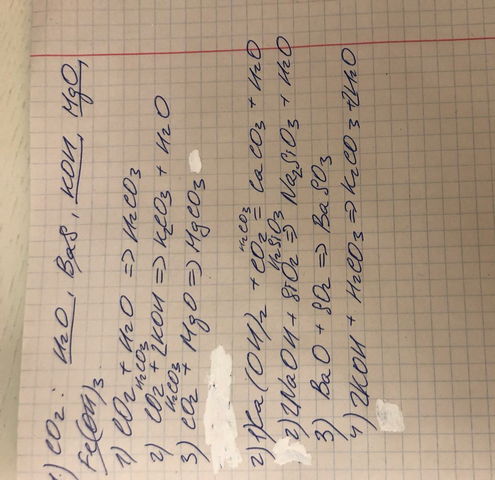 1) CO2: H2O, BaS, KOH, MgO,
Fe(OH)3
1) CO2 + H2O => H2CO3
H2CO3
2) CO2 + 2KOH => K2CO3 + H2O
H2CO3
3) CO2 + MgO => MgCO3
H2CO3
2) 1) Ca(OH)2 + CO2 = CaCO3 + H2O
H2SiO3
2) 2NaOH + SiO2 => Na2SiO3 + H2O
3) BaO + SO2 => BaSO3
4) 2KOH + H2CO3 => K2CO3 + 2H2O